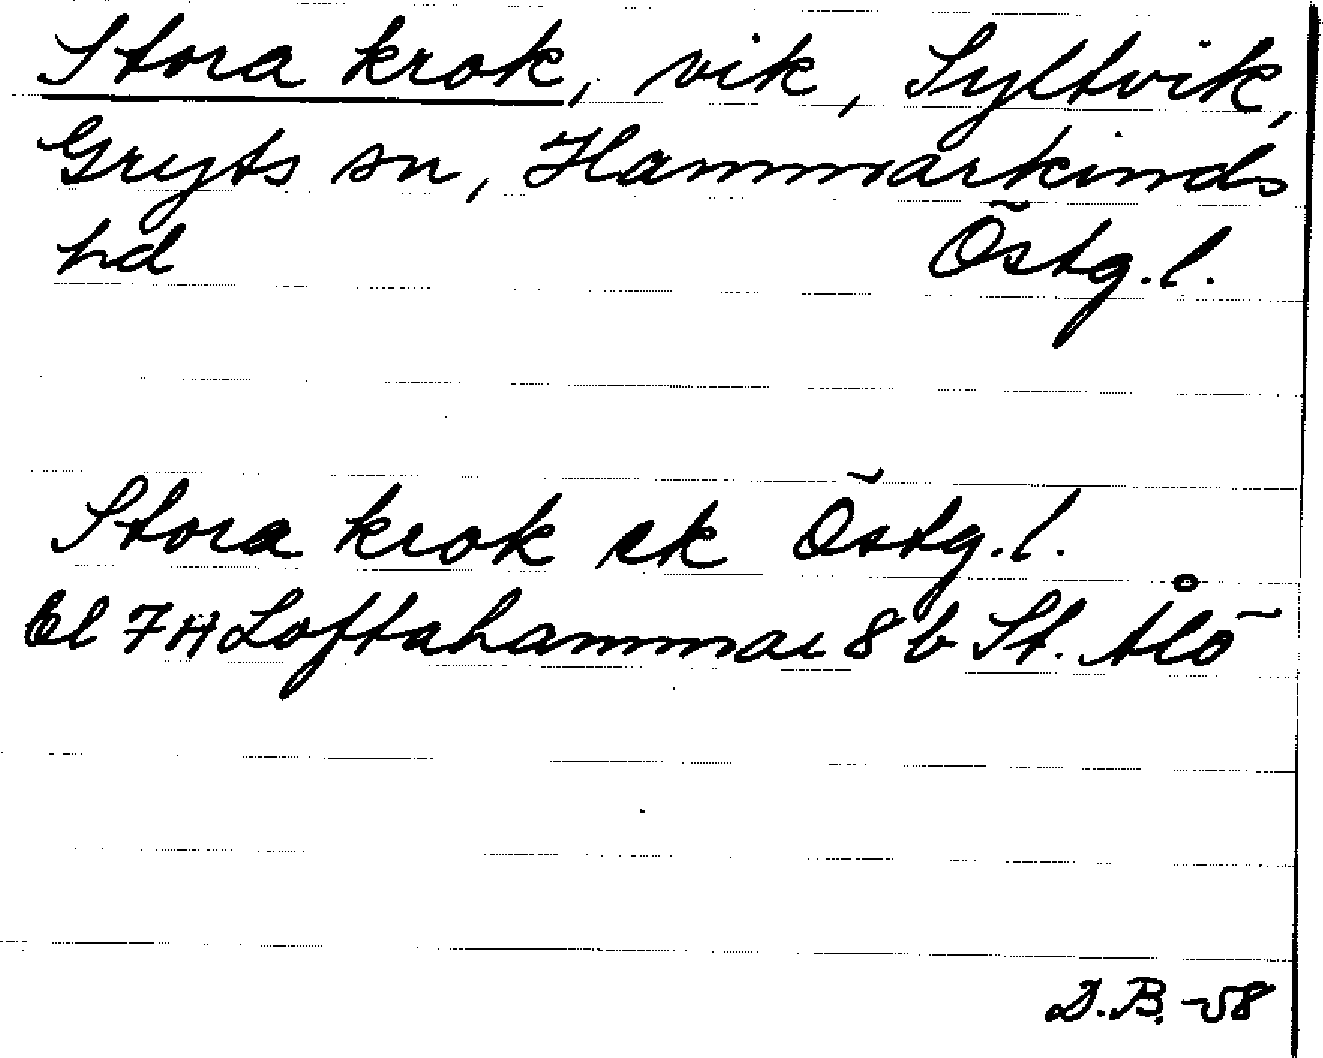 Stora krok, vik, Syltvik,
Gryts sn, Hammarkinds
hd Östg.l.
Stora krok ek Östg.l.
Bl 7H Loftahammar 8 b St. Ålö
D.B. -58